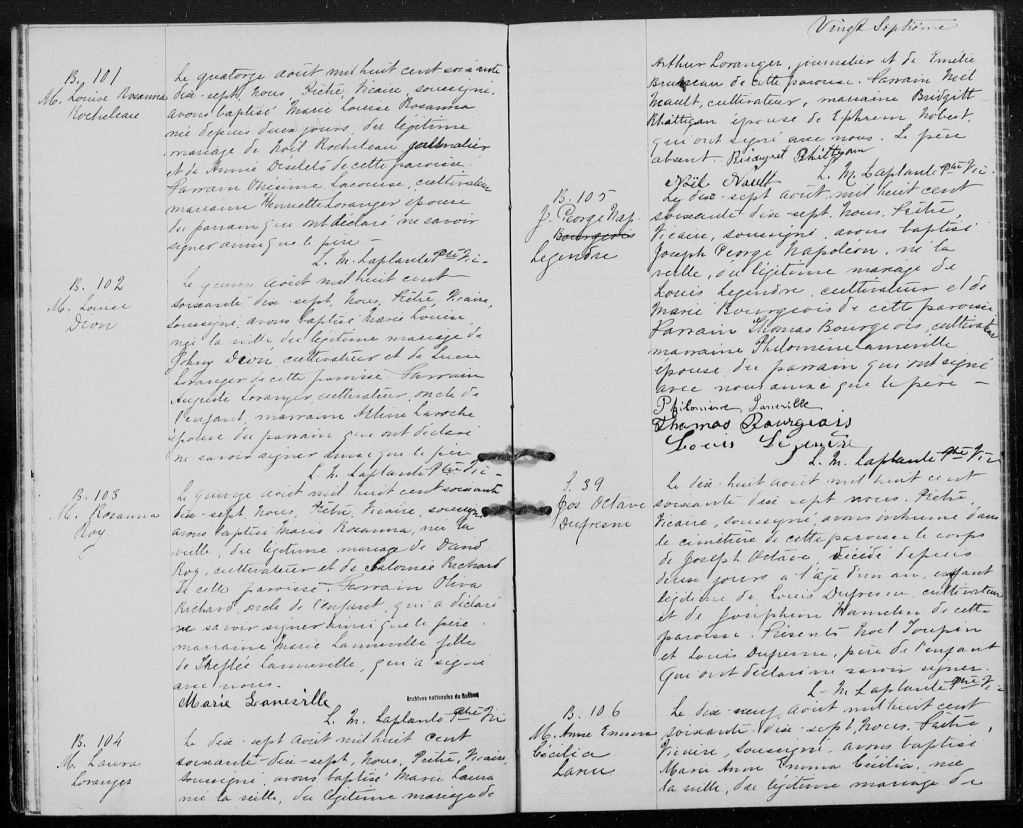 B. 101
M. Louise Rosanna
Rocheleau
Le quatorze août mil huit cent soixante
dix-sept, Nous, Prêtre, Vicaire, soussigné,
avons baptisé Marie Louise Rosanna
née depuis deux jours, du légitime
mariage de Noël Rocheleau journalier
et de Annie Désilets de cette paroisse.
Parrain Onésime Lacourse, cultivateur
marraine Henriette Loranger épouse
du parrain que ont déclaré ne savoir
signer ainsi que le père –
L. M. Laplante Ptre Vic
B. 102
M. Louise
Dion
Le quinze août mil huit cent
soixante dix-sept, Nous, Prêtre, Vicaire,
soussigné, avons baptisé Marie Louise
née la veille, du légitime mariage de
Johny Dion, cultivateur et de Lucie
Loranger de cette paroisse. Parrain
Auguste Loranger, cultivateur, oncle de
l'enfant, marraine Laroche
épouse du parrain que ont déclaré
ne savoir signer ainsi que le père
L. M. Laplante Ptre Vic –
B. 103
M. Rosanna
Roy
Le quinze août mil huit cent soixante
dix-sept, Nous, Prêtre, Vicaire, soussigné,
avons baptisé Marie Rosanna, née la
veille, du légitime mariage de David
Roy, cultivateur et de Salomée Richard
de cette paroisse. Parrain Oliva
Richard, oncle de l'enfant, qui a déclaré
ne savoir signer ainsi que le père.
marraine Marie Lanneville fille
de Lanneville, qui a signé
avec nous.
Marie Laneville
Archives nationales du Québec
L. M. Laplante Ptre Vic
B. 104
M. Laura
Loranger
Le dix-sept août mil huit cent
soixante-dix-sept, Nous, Prêtre, Vicaire,
soussigné, avons baptisé Marie Laura
née la veille, du légitime mariage de
Vingt Septième
Arthur Loranger, journalier et de Emélie
de cette paroisse. Parrain Noël
Neault, cultivateur, marraine Bridgitt
Rhattigan épouse de Ephrem Hobert,
qui ont signé avec nous. Le père
absent. Bridgret Rhittigan
Noël Nault L. M. Laplante Ptre Vic.
B. 105
J. George Nap.
Bourgeois
Legendre
Le dix-sept août, mil huit cent
soixante-dix-sept, Nous, Prêtre,
Vicaire, soussigné, avons baptisé
Joseph George Napoléon, né la
veille, du légitime mariage de
Louis Legendre, cultivateur et de
Marie Bourgeois de cette paroisse
Parrain Thomas Bourgeois, cultivateur
marraine Philomène Lanneville
épouse, du parrain qui ont signé
avec nous ainsi que le père –
Philomène Laneville
Thomas Bourgeois
Louis Legendre
L. M. Laplante Ptre Vic
S. 39
Jos. Octave
Dufresne
Le dix-huit août mil huit cent
soixante dix sept nous, Prêtre,
Vicaire, soussigné, avons inhumé dans
le cimetière de cette paroisse le corps
de Joseph Octave décédé depuis
deux jours à l'âge d'un an, enfant
légitime de Louis Dufresne, cultivateur
et de Josephine Hamelin de cette
paroisse. Présents Noël Toupin
et Louis Dufresne, père de l'enfant
qui ont déclaré ne savoir signer.
L. M. Laplante Ptre Vic
B. 106
M. Anne Emma
Cécilia
Le dix-neuf août mil huit cent
soixante-dix-sept, Nous, Prêtre,
Vicaire, soussigné, avons baptisé
Marie Anne Emma Cécilia, née
la veille, du légitime mariage de